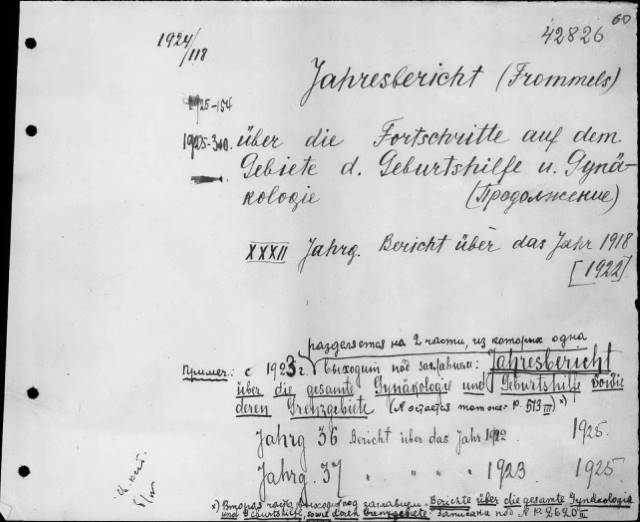 60
42826
1924/118
Jahresbericht (Frommels)
1925-154
1925-340. über die Fortschritte auf dem
Gebiete d. Geburtshilfe u. Gynä-
kologie (Продолжение)
XXXII Jahrg. Bericht über das Jahr 1918
[1922]
разделяется на 2 части, из которых одна
Пример.: с 1923 г. выходит под заглавием: Jahresbericht
über die gesamte Gynäkologie und Geburtshilfe sowie
deren Grenzgebiete (А остается тот же P. 513 III) x)
Jahrg 36 Bericht über das Jahr 1922 1925.
Jahrg. 37 " " " " 1923 1925
x) Вторая часть выходит под заглавием: Berichte über die gesamte Gynäkologie
und Geburtshilfe, sowie deren Grenzgebiete записана под № P. 2620 III